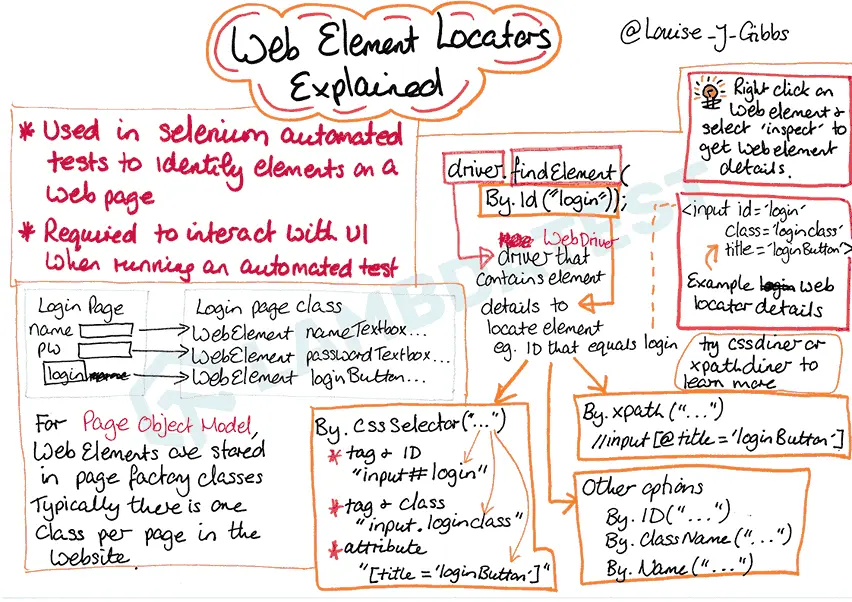 Web Element Locators
Explained
@Louise_J_Gibbs
* Used in selenium automated
tests to identify elements on a
web page
* Required to interact with UI
when running an automated test
Login Page
name
PW
login
Login page class
WebElement nameTextbox...
WebElement passwordTextbox...
WebElement loginButton...
For Page Object Model,
Web Elements are stored
in page factory classes
Typically there is one
Class per page in the
website.
driver.findElement(
By.Id("login"));
WebDriver
driver that
contains element
details to
locate element
eg. ID that equals login
Right click on
web element &
select 'inspect' to
get web element
details.
<input id='login'
class='loginclass'
title='loginButton'>
Example web
locator details
try cssdiner or
xpathdiner to
learn more
By.cssSelector("...")
* tag & ID
"input#login"
* tag & class
"input.loginclass"
* attribute
"[title='loginButton']"
By.xpath("...")
//input[@title='loginButton']
Other options
By.ID("...")
By.ClassName("...")
By.Name("...")
LAMBDATEST